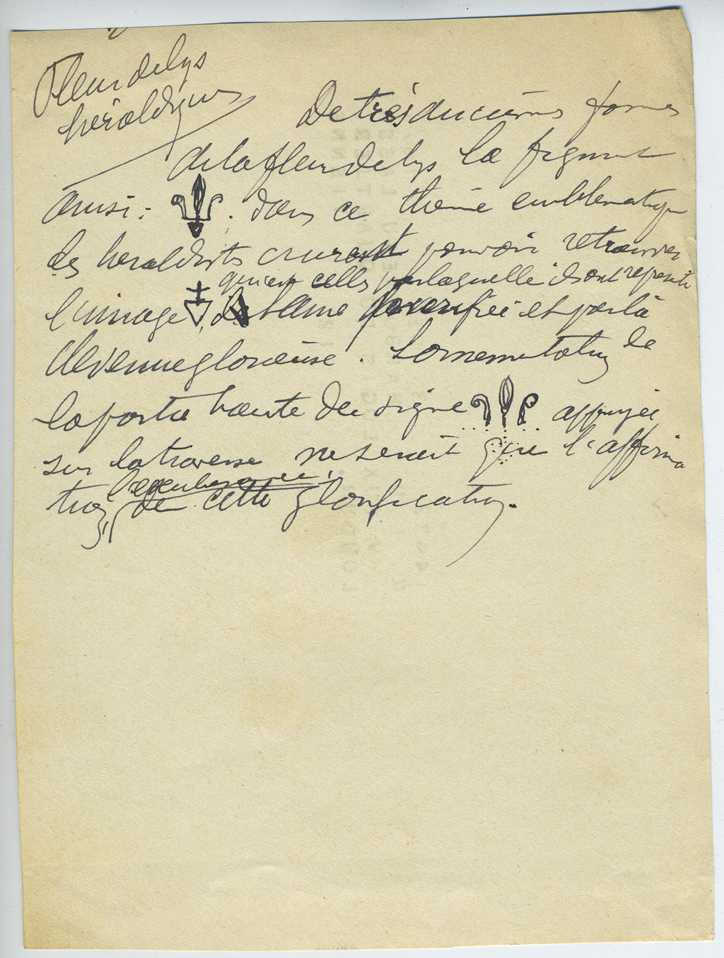 Fleur de lys
héraldique
De très anciennes formes
de la fleur de lys la figurent
ainsi : . dans ce thème emblématique
des héraldists crurent pouvoir retrouver
qui est celle par laquelle ils ont représenté
l'image de l'âme purifiée et par là
devenue glorieuse. L'ornementation de
la partie haute du signe appuyée
sur la traverse ne serait que l'affirma
tion de cette glorification.